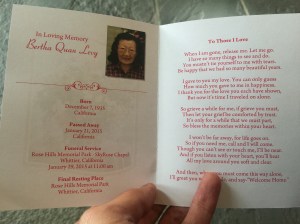 In Loving Memory
Bertha Quan
Born
November
California
Passed Away
January 2015
Whittier, California
Funeral Service
Rose Hills Memorial Park - SkyRose Chapel
Whittier, California
January 2015 at 11:00 am
Final Resting Place
Rose Hills Memorial Park
Whittier, California
To Those I Love
When I am gone, release me. Let me go.
I have so many things to see and do.
You mustn't tie yourself to me with tears.
Be happy that we had so many beautiful years.
I gave to you my love. You can only guess
How much you gave to me in happiness.
I thank you for the love you each have shown,
But now it's time I traveled on alone.
So grieve a while for me, if grieve you must,
Then let your grief be comforted by trust.
It's only for a while that we must part,
So bless the memories within your heart.
I won't be far away, for life goes on.
So if you need me, call and I will come.
Though you can't see or touch me, I'll be near.
And if you listen with your heart, you'll hear
All my love around you soft and clear.
And then, must come this way alone,
I'll greet you and say "Welcome Home."